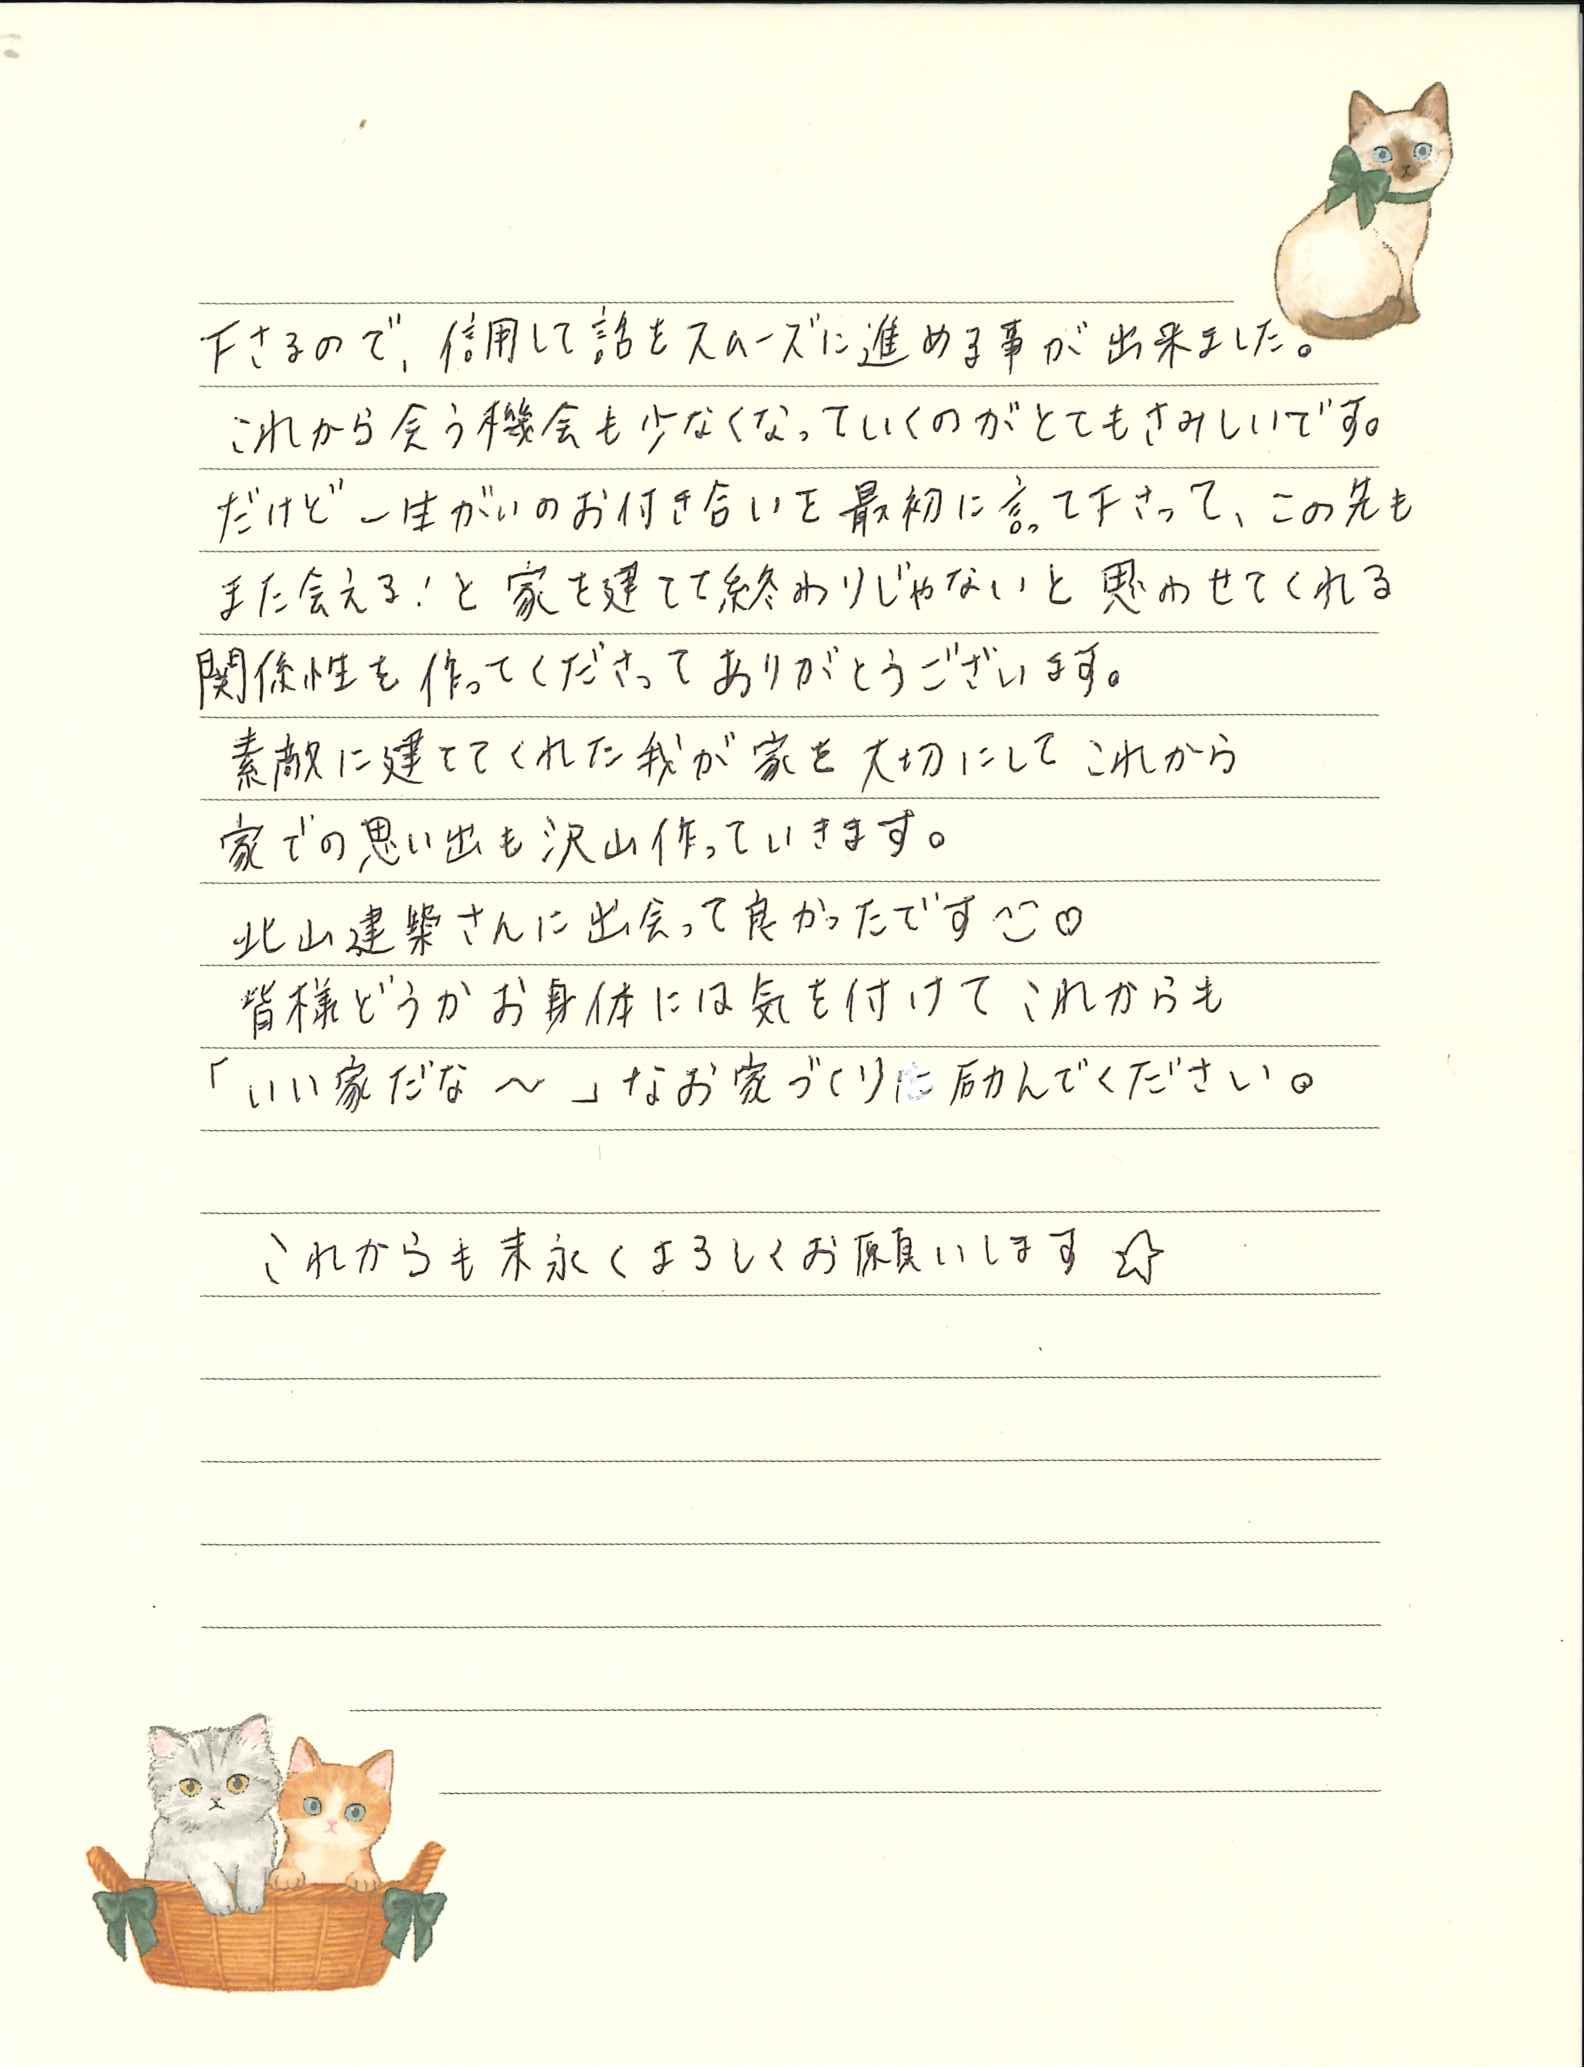 下さるので、信用して話をスムーズに進める事が出来ました。
これから会う機会も少なくなっていくのがとてもさみしいです。
だけど一生がいのお付き合いを最初に言って下さって、この先も
また会える!と家を建てて終わりじゃないと思わせてくれる
関係性を作ってくださってありがとうございます。
素敵に建ててくれた我が家を大切にしてこれから
家での思い出も沢山作っていきます。
北山建築さんに出会って良かったです♡
皆様どうかお身体には気を付けてこれからも
「いい家だな〜」なお家づくりに励んでください。
これからも末永くよろしくお願いします☆